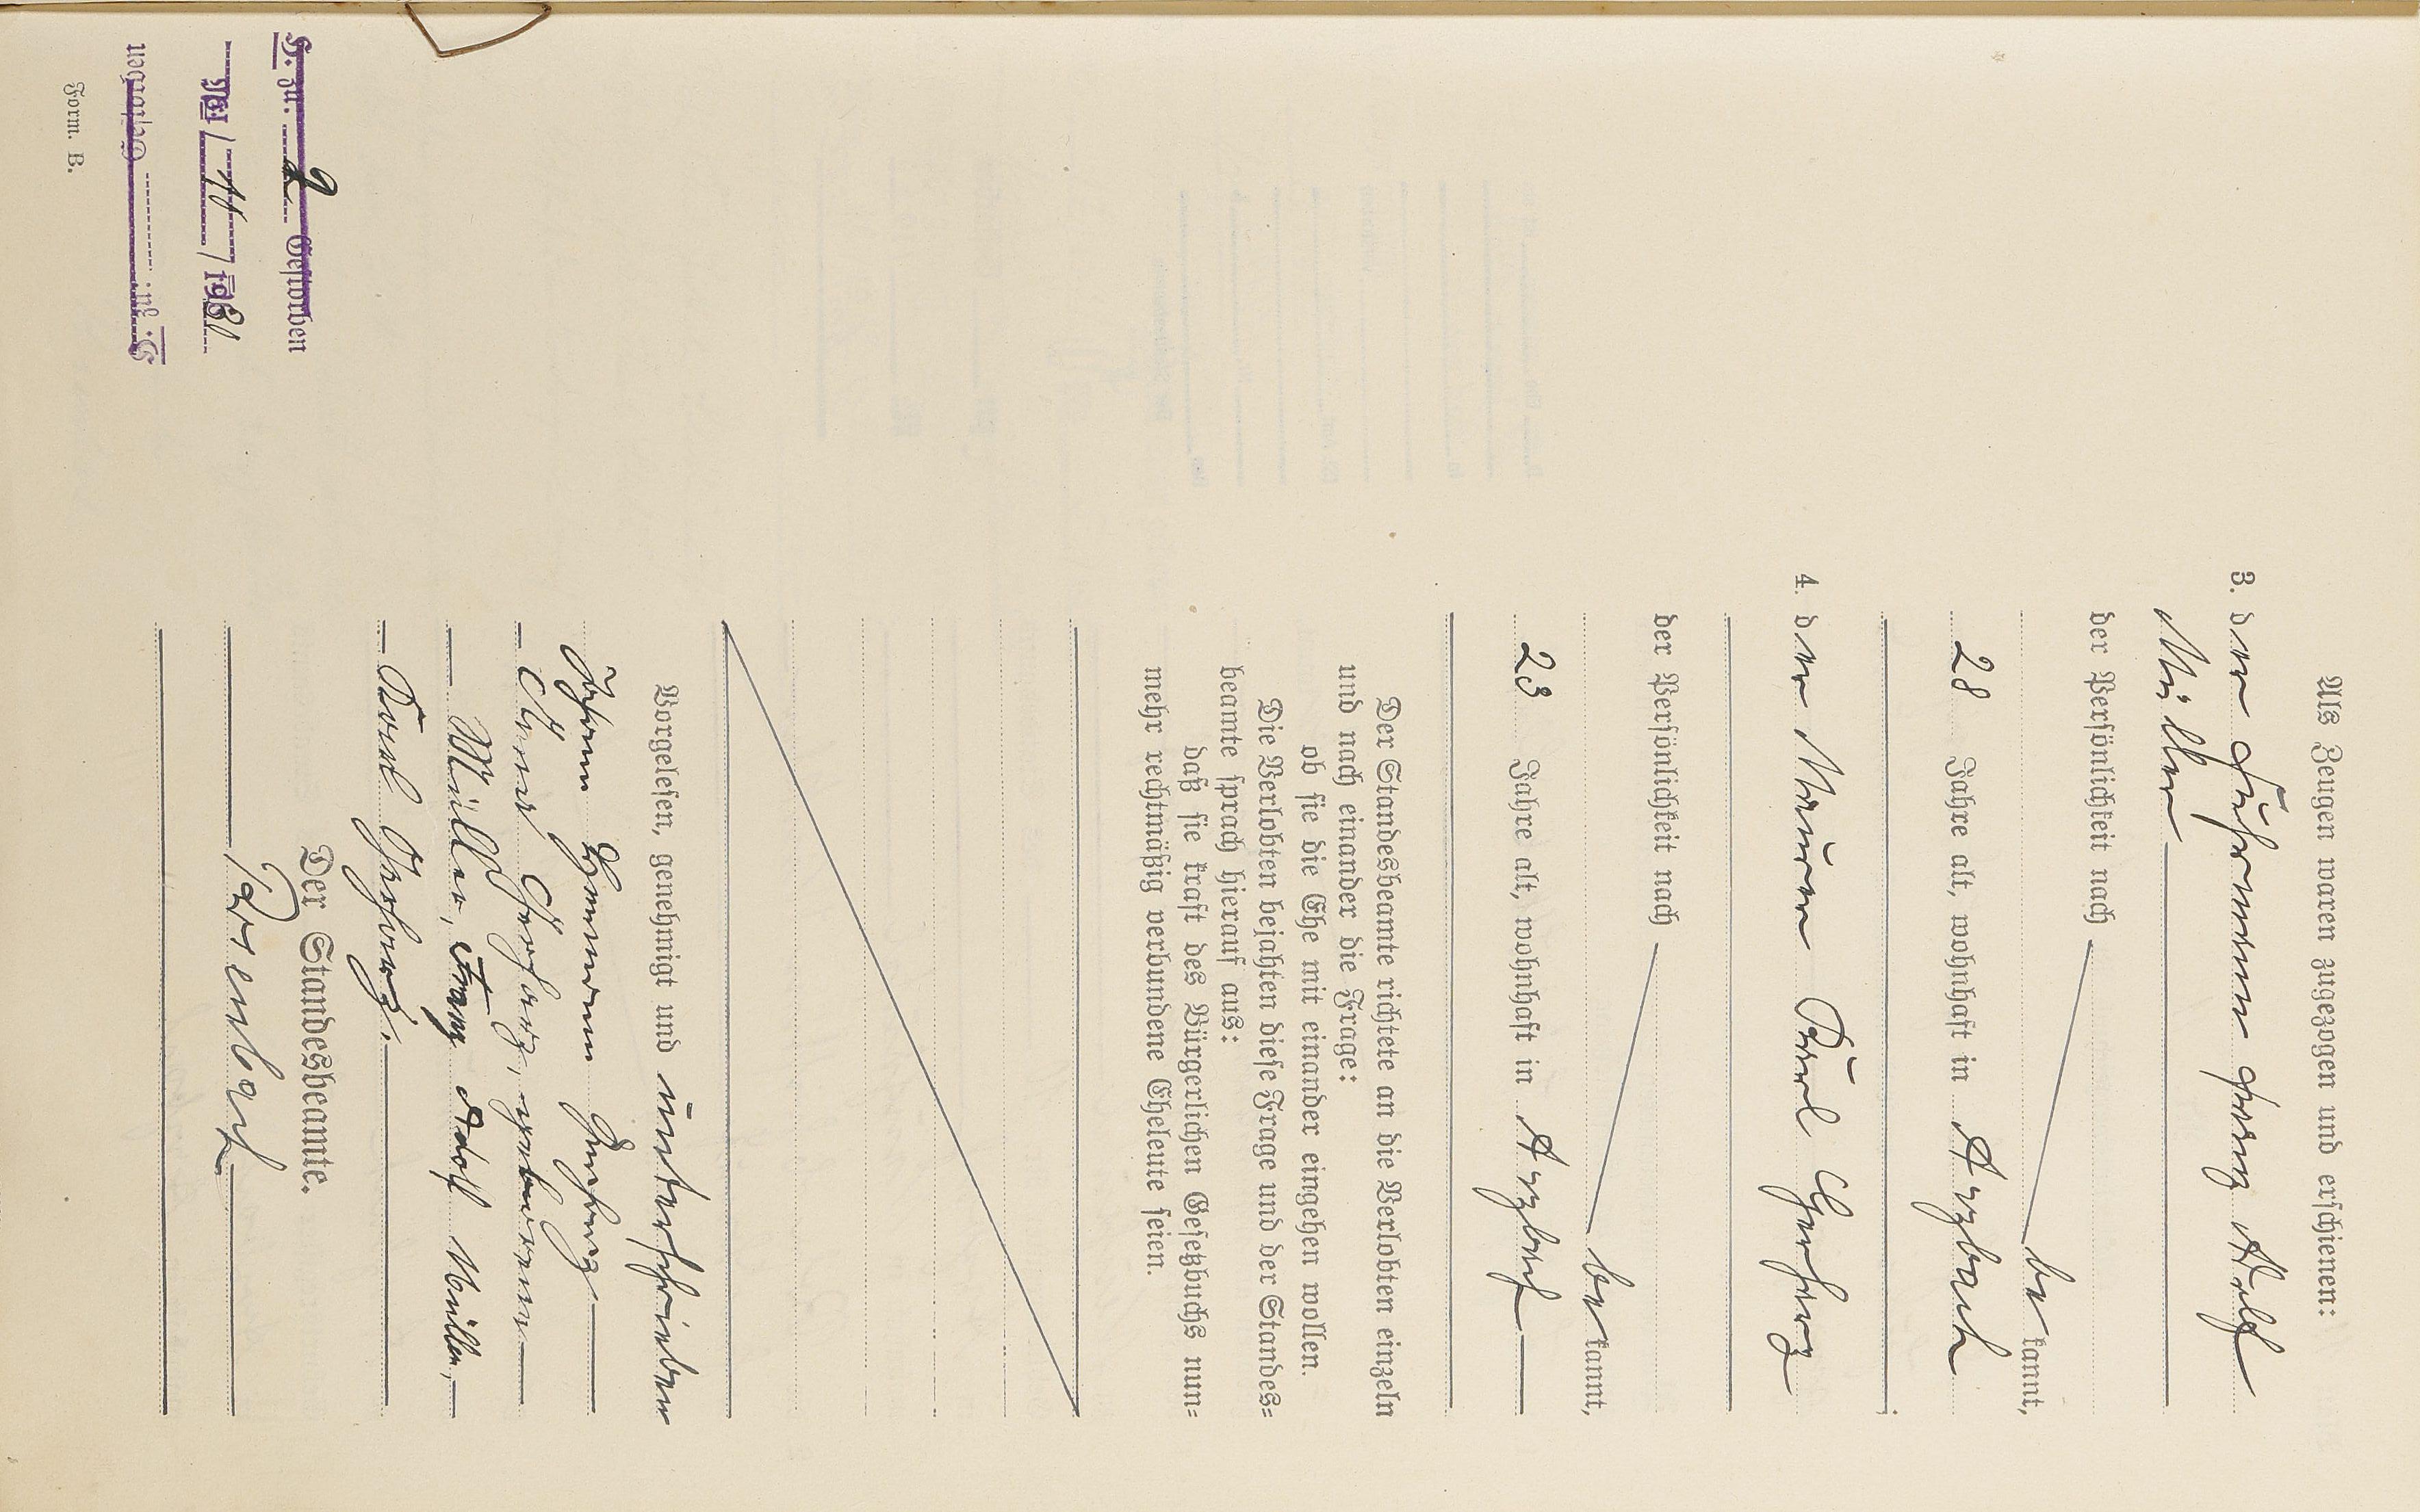 Als Zeugen waren zugezogen und erschienen:
3. der Fuhrmann Franz Adolf
Müller
der Persönlichkeit nach
be kannt,
28 Jahre alt, wohnhaft in Arzbach
4. der Maurer Karl Gerharz
der Persönlichkeit nach
be kannt,
23 Jahre alt, wohnhaft in Arzbach
Der Standesbeamte richtete an die Verlobten einzeln
und nach einander die Frage:
ob sie die Ehe mit einander eingehen wollen.
Die Verlobten bejahten diese Frage und der Standes=
beamte sprach hierauf aus:
daß sie kraft des Bürgerlichen Gesetzbuchs nun=
mehr rechtmäßig verbundene Eheleute seien.
Vorgelesen, genehmigt und unterschrieben
Johann Hermann Gerharz
Anna Gerharz, geborene
Müller, Franz Adolf Müller,
Karl Gerharz.
Der Standesbeamte.
H. zu. Gestorben
No 11 / 1961
Form. B.